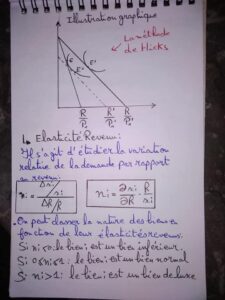 Illustration graphique
La méthode
de Hicks
E
E'
E''
R/Px R'/Px R/P'x
1. Elasticité Revenu:
Il s'agit d'étudier la variation
relative de la demande par rapport
au revenu.
Δxi/xi
ΔR/R
ni = ∂xi/∂R · R/xi
On peut classer la nature des biens en
fonction de leur élasticité revenu.
Si ni<0: le bien est un bien inférieur.
Si 0≤ni≤1: le bien est un bien normal
Si ni>1: le bien est un bien de luxe